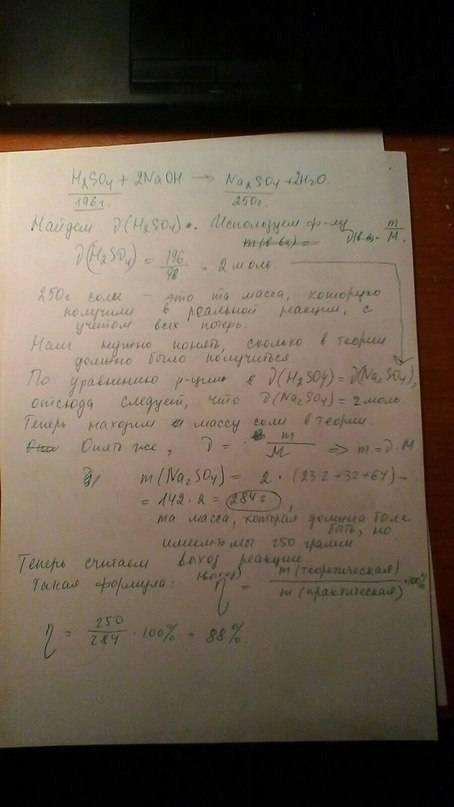 H2SO4 + 2NaOH → Na2SO4 + 2H2O
196г. 250г.
Найдем ν(H2SO4). Используем ф-лу ν(в-ва) = m/M.
ν(H2SO4) = 196/98 = 2 моль
250г соли – это та масса, которую
получили в реальной реакции, с
учетом всех потерь.
Нам нужно понять, сколько в теории
должно было получиться
По уравнению р-ции ν(H2SO4) = ν(Na2SO4),
отсюда следует, что ν(Na2SO4) = 2 моль
Теперь находим массу соли в теории.
Опять же, ν = m/M => m = ν·M
m(Na2SO4) = 2 · (23·2+32+64) =
= 142·2 = 284г,
та масса, которая должна была
быть, но
имеем мы 250 грамм
Теперь считаем выход реакции
Такая формула: (выход) η = m(теоретическая)/m(практическая) · 100%
η = 250/284 · 100% = 88%